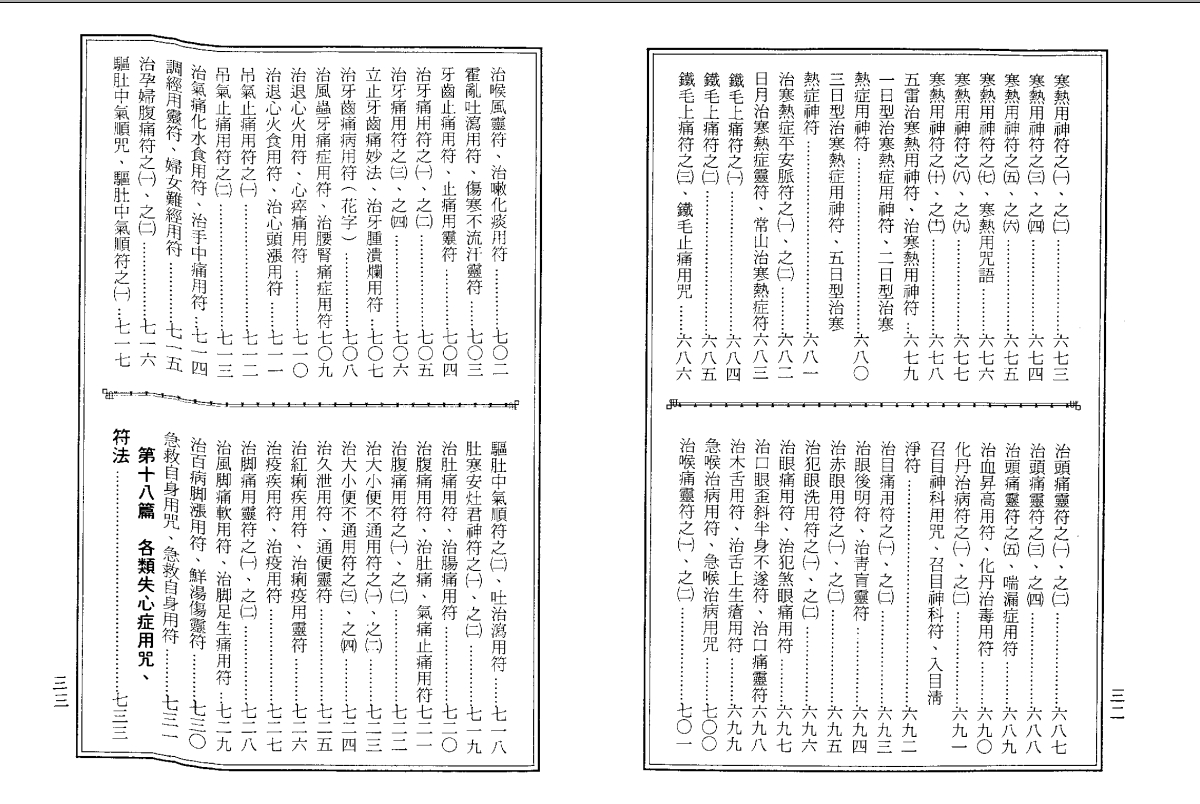 寒熱用神符之㈠、之㈡……六七三
寒熱用神符之㈢、之㈣……六七四
寒熱用神符之㈤、之㈥……六七五
寒熱用神符之㈦、寒熱用咒語……六七六
寒熱用神符之㈧、之㈨……六七七
寒熱用神符之㈩、之㈩㈠……六七八
五雷治寒熱用神符、治寒熱用神符……六七九
一日型治寒熱症用神符、二日型治寒
熱症用神符……六八〇
三日型治寒熱症用神符、五日型治寒
熱症神符……六八一
治寒熱症平安脈符之㈠、之㈡……六八二
日月治寒熱症靈符、常山治寒熱症符…六八三
鐵毛上痛符之㈠……六八四
鐵毛上痛符之㈡……六八五
鐵毛上痛符之㈢、鐵毛止痛用咒……六八六
治頭痛靈符之㈠、之㈡……六八七
治頭痛靈符之㈢、之㈣……六八八
治頭痛靈符之㈤、喘漏症用符……六八九
治血昇高用符、化丹治毒用符……六九〇
化丹治病符之㈠、之㈡……六九一
召目神科用咒、召目神科符、入目淸
淨符……六九二
治目痛用符之㈠、之㈡……六九三
治眼後明符、治靑盲靈符……六九四
治赤眼用符之㈠、之㈡……六九五
治犯眼洗用符之㈠、之㈡……六九六
治眼痛用符、治犯煞眼痛用符……六九七
治口眼歪斜半身不遂符、治口痛靈符…六九八
治木舌用符、治舌上生瘡用符……六九九
急喉治病用符、急喉治病用咒……七〇〇
治喉痛靈符之㈠、之㈡……七〇一
三二
治喉風靈符、治嗽化痰用符……七〇二
霍亂吐瀉用符、傷寒不流汗靈符……七〇三
牙齒止痛用符、止痛用靈符……七〇四
治牙痛用符之㈠、之㈡……七〇五
治牙痛用符之㈢、之㈣……七〇六
立止牙齒痛妙法、治牙腫潰爛用符……七〇七
治牙齒痛病用符（花字）……七〇八
治風蟲牙痛症用符、治腰腎痛症用符七〇九
治退心火用符、心瘁痛用符……七一〇
治退心火食用符、治心頭漲用符……七一一
吊氣止痛用符之㈠……七一二
吊氣止痛用符之㈡……七一三
治氣痛化水食用符、治手中痛用符…七一四
調經用靈符、婦女難經用符……七一五
治孕婦腹痛符之㈠、之㈡……七一六
驅肚中氣順咒、驅肚中氣順符之㈠…七一七
驅肚中氣順符之㈡、吐治瀉用符……七一八
肚寒安灶君神符之㈠、之㈡……七一九
治肚痛用符、治腸痛用符……七二〇
治腹痛用符、治肚痛、氣痛止痛用符七二一
治腹痛用符之㈠、之㈡……七二二
治大小便不通用符之㈠、之㈡……七二三
治大小便不通用符之㈢、之㈣……七二四
治久泄用符、通便靈符……七二五
治紅痢疾用符、治痢疫用靈符……七二六
治疫疾用符、治疫用符……七二七
治脚痛用靈符之㈠、之㈡……七二八
治風脚痛軟用符、治脚足生痛用符……七二九
治百病脚漲用符、鮮湯傷靈符……七三〇
急救自身用咒、急救自身用符……七三一
第十八篇　各類失心症用咒、
符法……七三三
三三